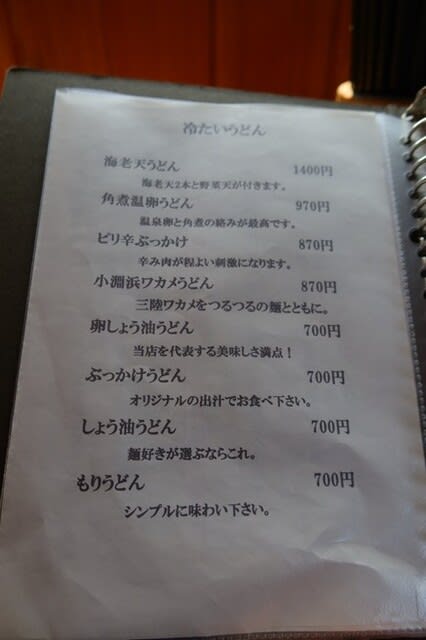 冷たいうどん
海老天うどん 1400円
海老天2本と野菜天が付きます。
角煮温卵うどん 970円
温泉卵と角煮の絡みが最高です。
ピリ辛ぶっかけ 870円
辛み肉が程よい刺激になります。
小淵浜ワカメうどん 870円
三陸ワカメをつるつるの麺とともに。
卵しょう油うどん 700円
当店を代表する美味しさ満点！
ぶっかけうどん 700円
オリジナルの出汁でお食べ下さい。
しょう油うどん 700円
麺好きが選ぶならこれ。
もりうどん 700円
シンプルに味わい下さい。